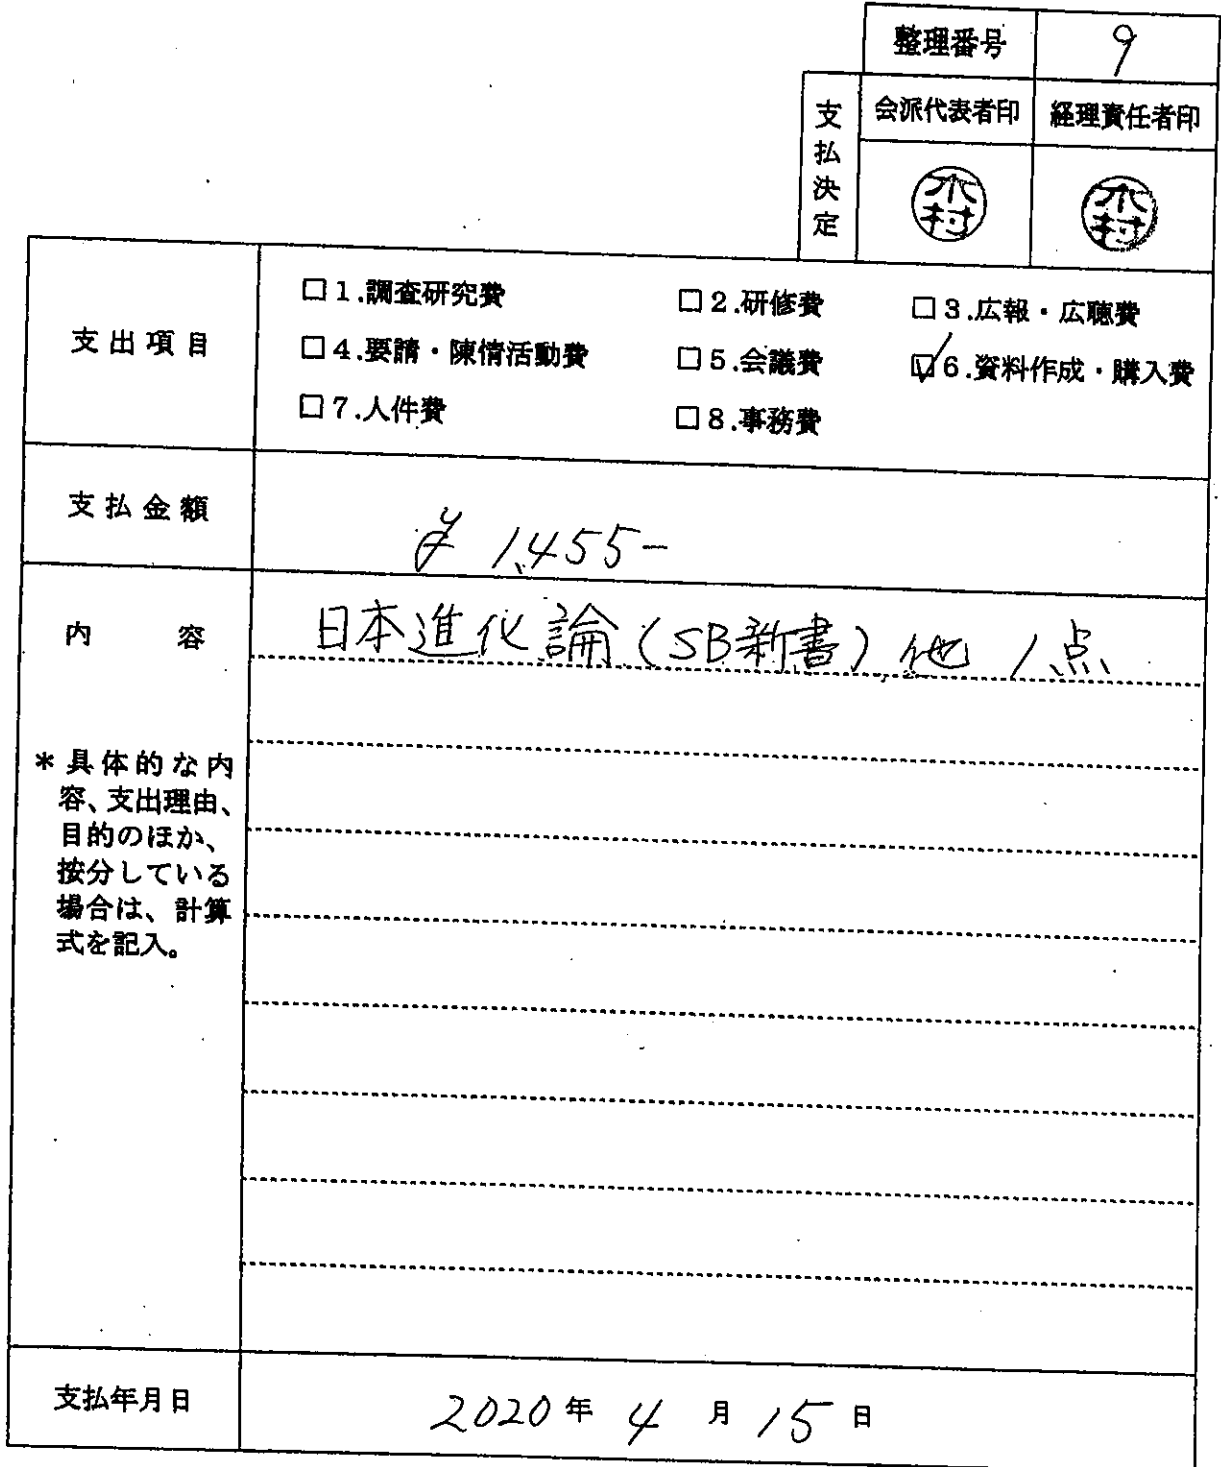 整理番号 9
支払決定
会派代表者印 経理責任者印
木村 木村
支出項目
□1.調査研究費 □2.研修費 □3.広報・広聴費
□4.要請・陳情活動費 □5.会議費 ☑6.資料作成・購入費
□7.人件費 □8.事務費
支払金額
¥1,455-
内容
日本進化論(SB新書)他1点
*具体的な内
容、支出理由、
目的のほか、
按分している
場合は、計算
式を記入。
支払年月日
2020年4月15日